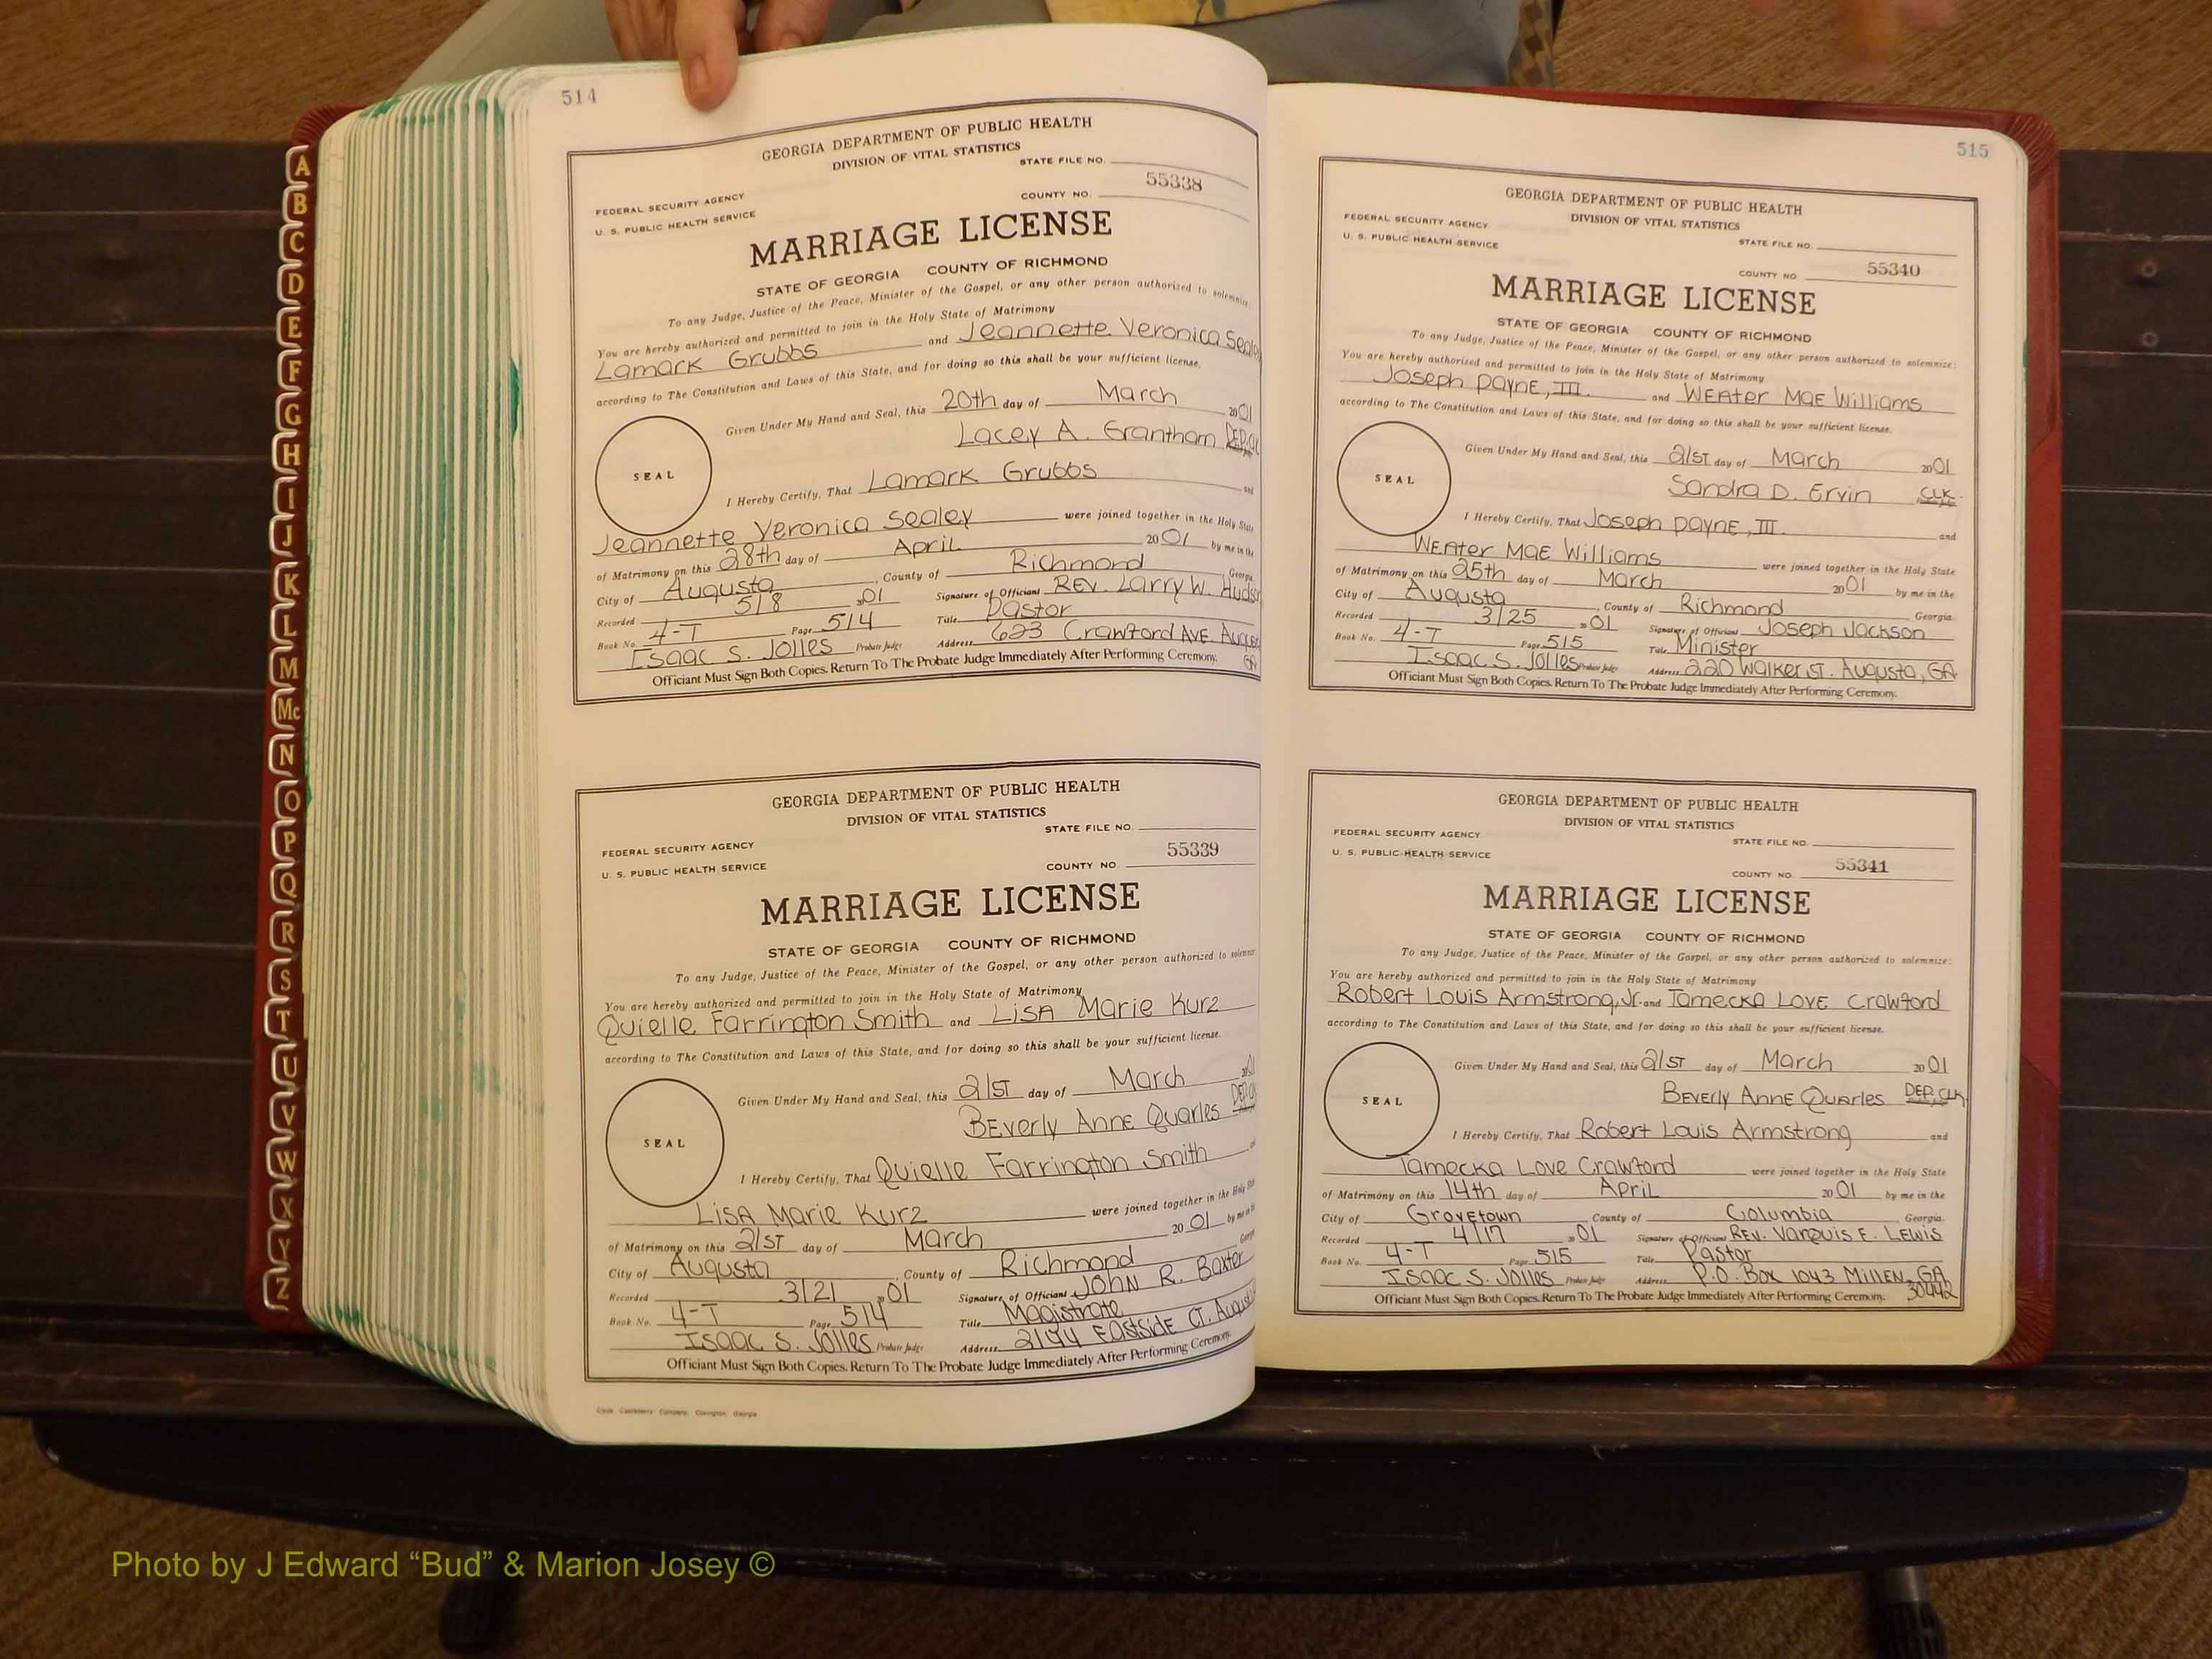 A
B
C
D
E
F
G
H
I
J
K
L
M
Mc
N
O
P
Q
R
S
T
U
V
W
X
Y
Z
514
GEORGIA DEPARTMENT OF PUBLIC HEALTH
DIVISION OF VITAL STATISTICS
STATE FILE NO.
FEDERAL SECURITY AGENCY
55338
U. S. PUBLIC HEALTH SERVICE
COUNTY NO.
MARRIAGE LICENSE
STATE OF GEORGIA COUNTY OF RICHMOND
To any Judge, Justice of the Peace, Minister of the Gospel, or any other person authorized to solemnize:
You are hereby authorized and permitted to join in the Holy State of Matrimony
Lamark Grubbs and Jeannette Veronica Sealey
according to The Constitution and Laws of this State, and for doing so this shall be your sufficient license.
Given Under My Hand and Seal, this 20th day of March 2001
Lacey A. Grantham DEP. CL
SEAL
I Hereby Certify, That Lamark Grubbs and
Jeannette Veronica Sealey were joined together in the Holy State
of Matrimony on this 28th day of April 2001 by me in the
City of Augusta, County of Richmond Georgia.
Recorded 5/8 2001 Signature of Officiant Rev. Larry W. Hudson
Book No. 4-T Page 514 Title Pastor
Isaac S. Jolles Probate Judge Address 623 Crawford AVE. Augusta
GA
Officiant Must Sign Both Copies. Return To The Probate Judge Immediately After Performing Ceremony.
GEORGIA DEPARTMENT OF PUBLIC HEALTH
DIVISION OF VITAL STATISTICS
STATE FILE NO.
FEDERAL SECURITY AGENCY
55339
U. S. PUBLIC HEALTH SERVICE
COUNTY NO.
MARRIAGE LICENSE
STATE OF GEORGIA COUNTY OF RICHMOND
To any Judge, Justice of the Peace, Minister of the Gospel, or any other person authorized to solemnize
You are hereby authorized and permitted to join in the Holy State of Matrimony
Quielle Farrington Smith and Lisa Marie Kurz
according to The Constitution and Laws of this State, and for doing so this shall be your sufficient license.
Given Under My Hand and Seal, this 21st day of March 2001
Beverly Anne Quarles DEP. CL
SEAL
I Hereby Certify, That Quielle Farrington Smith and
Lisa Marie Kurz were joined together in the Holy State
of Matrimony on this 21st day of March 2001 by me in the
City of Augusta, County of Richmond Georgia
Recorded 3/21 2001 Signature of Officiant John R. Baxter
Book No. 4-T Page 514 Title Magistrate
Isaac S. Jolles Probate Judge Address 2194 Eastside CT. Augusta
Officiant Must Sign Both Copies. Return To The Probate Judge Immediately After Performing Ceremony.
Clyde Castleberry Company, Covington, Georgia
515
GEORGIA DEPARTMENT OF PUBLIC HEALTH
DIVISION OF VITAL STATISTICS
FEDERAL SECURITY AGENCY
STATE FILE NO.
U. S. PUBLIC HEALTH SERVICE
COUNTY NO. 55340
MARRIAGE LICENSE
STATE OF GEORGIA COUNTY OF RICHMOND
To any Judge, Justice of the Peace, Minister of the Gospel, or any other person authorized to solemnize:
You are hereby authorized and permitted to join in the Holy State of Matrimony
Joseph Payne, III. and WEAter Mae Williams
according to The Constitution and Laws of this State, and for doing so this shall be your sufficient license.
Given Under My Hand and Seal, this 21st day of March 2001
Sandra D. Ervin CLK.
SEAL
I Hereby Certify, That Joseph Payne, III. and
WEAter Mae Williams were joined together in the Holy State
of Matrimony on this 25th day of March 2001 by me in the
City of Augusta, County of Richmond Georgia.
Recorded 3/25 2001 Signature of Officiant Joseph Jackson
Book No. 4-T Page 515 Title Minister
Isaac S. Jolles Probate Judge Address 220 Walker ST. Augusta, GA
Officiant Must Sign Both Copies. Return To The Probate Judge Immediately After Performing Ceremony.
GEORGIA DEPARTMENT OF PUBLIC HEALTH
DIVISION OF VITAL STATISTICS
FEDERAL SECURITY AGENCY
STATE FILE NO.
U. S. PUBLIC HEALTH SERVICE
COUNTY NO. 55341
MARRIAGE LICENSE
STATE OF GEORGIA COUNTY OF RICHMOND
To any Judge, Justice of the Peace, Minister of the Gospel, or any other person authorized to solemnize:
You are hereby authorized and permitted to join in the Holy State of Matrimony
Robert Louis Armstrong, Jr. and Tamecka Love Crawford
according to The Constitution and Laws of this State, and for doing so this shall be your sufficient license.
Given Under My Hand and Seal, this 21st day of March 2001
Beverly Anne Quarles DEP. CLK
SEAL
I Hereby Certify, That Robert Louis Armstrong and
Tamecka Love Crawford were joined together in the Holy State
of Matrimony on this 14th day of April 2001 by me in the
City of Grovetown County of Columbia Georgia.
Recorded 4/17 2001 Signature of Officiant Rev. Varquis E. Lewis
Book No. 4-T Page 515 Title Pastor
Isaac S. Jolles Probate Judge Address P.O. Box 1043 Millen, GA
30442
Officiant Must Sign Both Copies. Return To The Probate Judge Immediately After Performing Ceremony.
Photo by J Edward “Bud” & Marion Josey ©